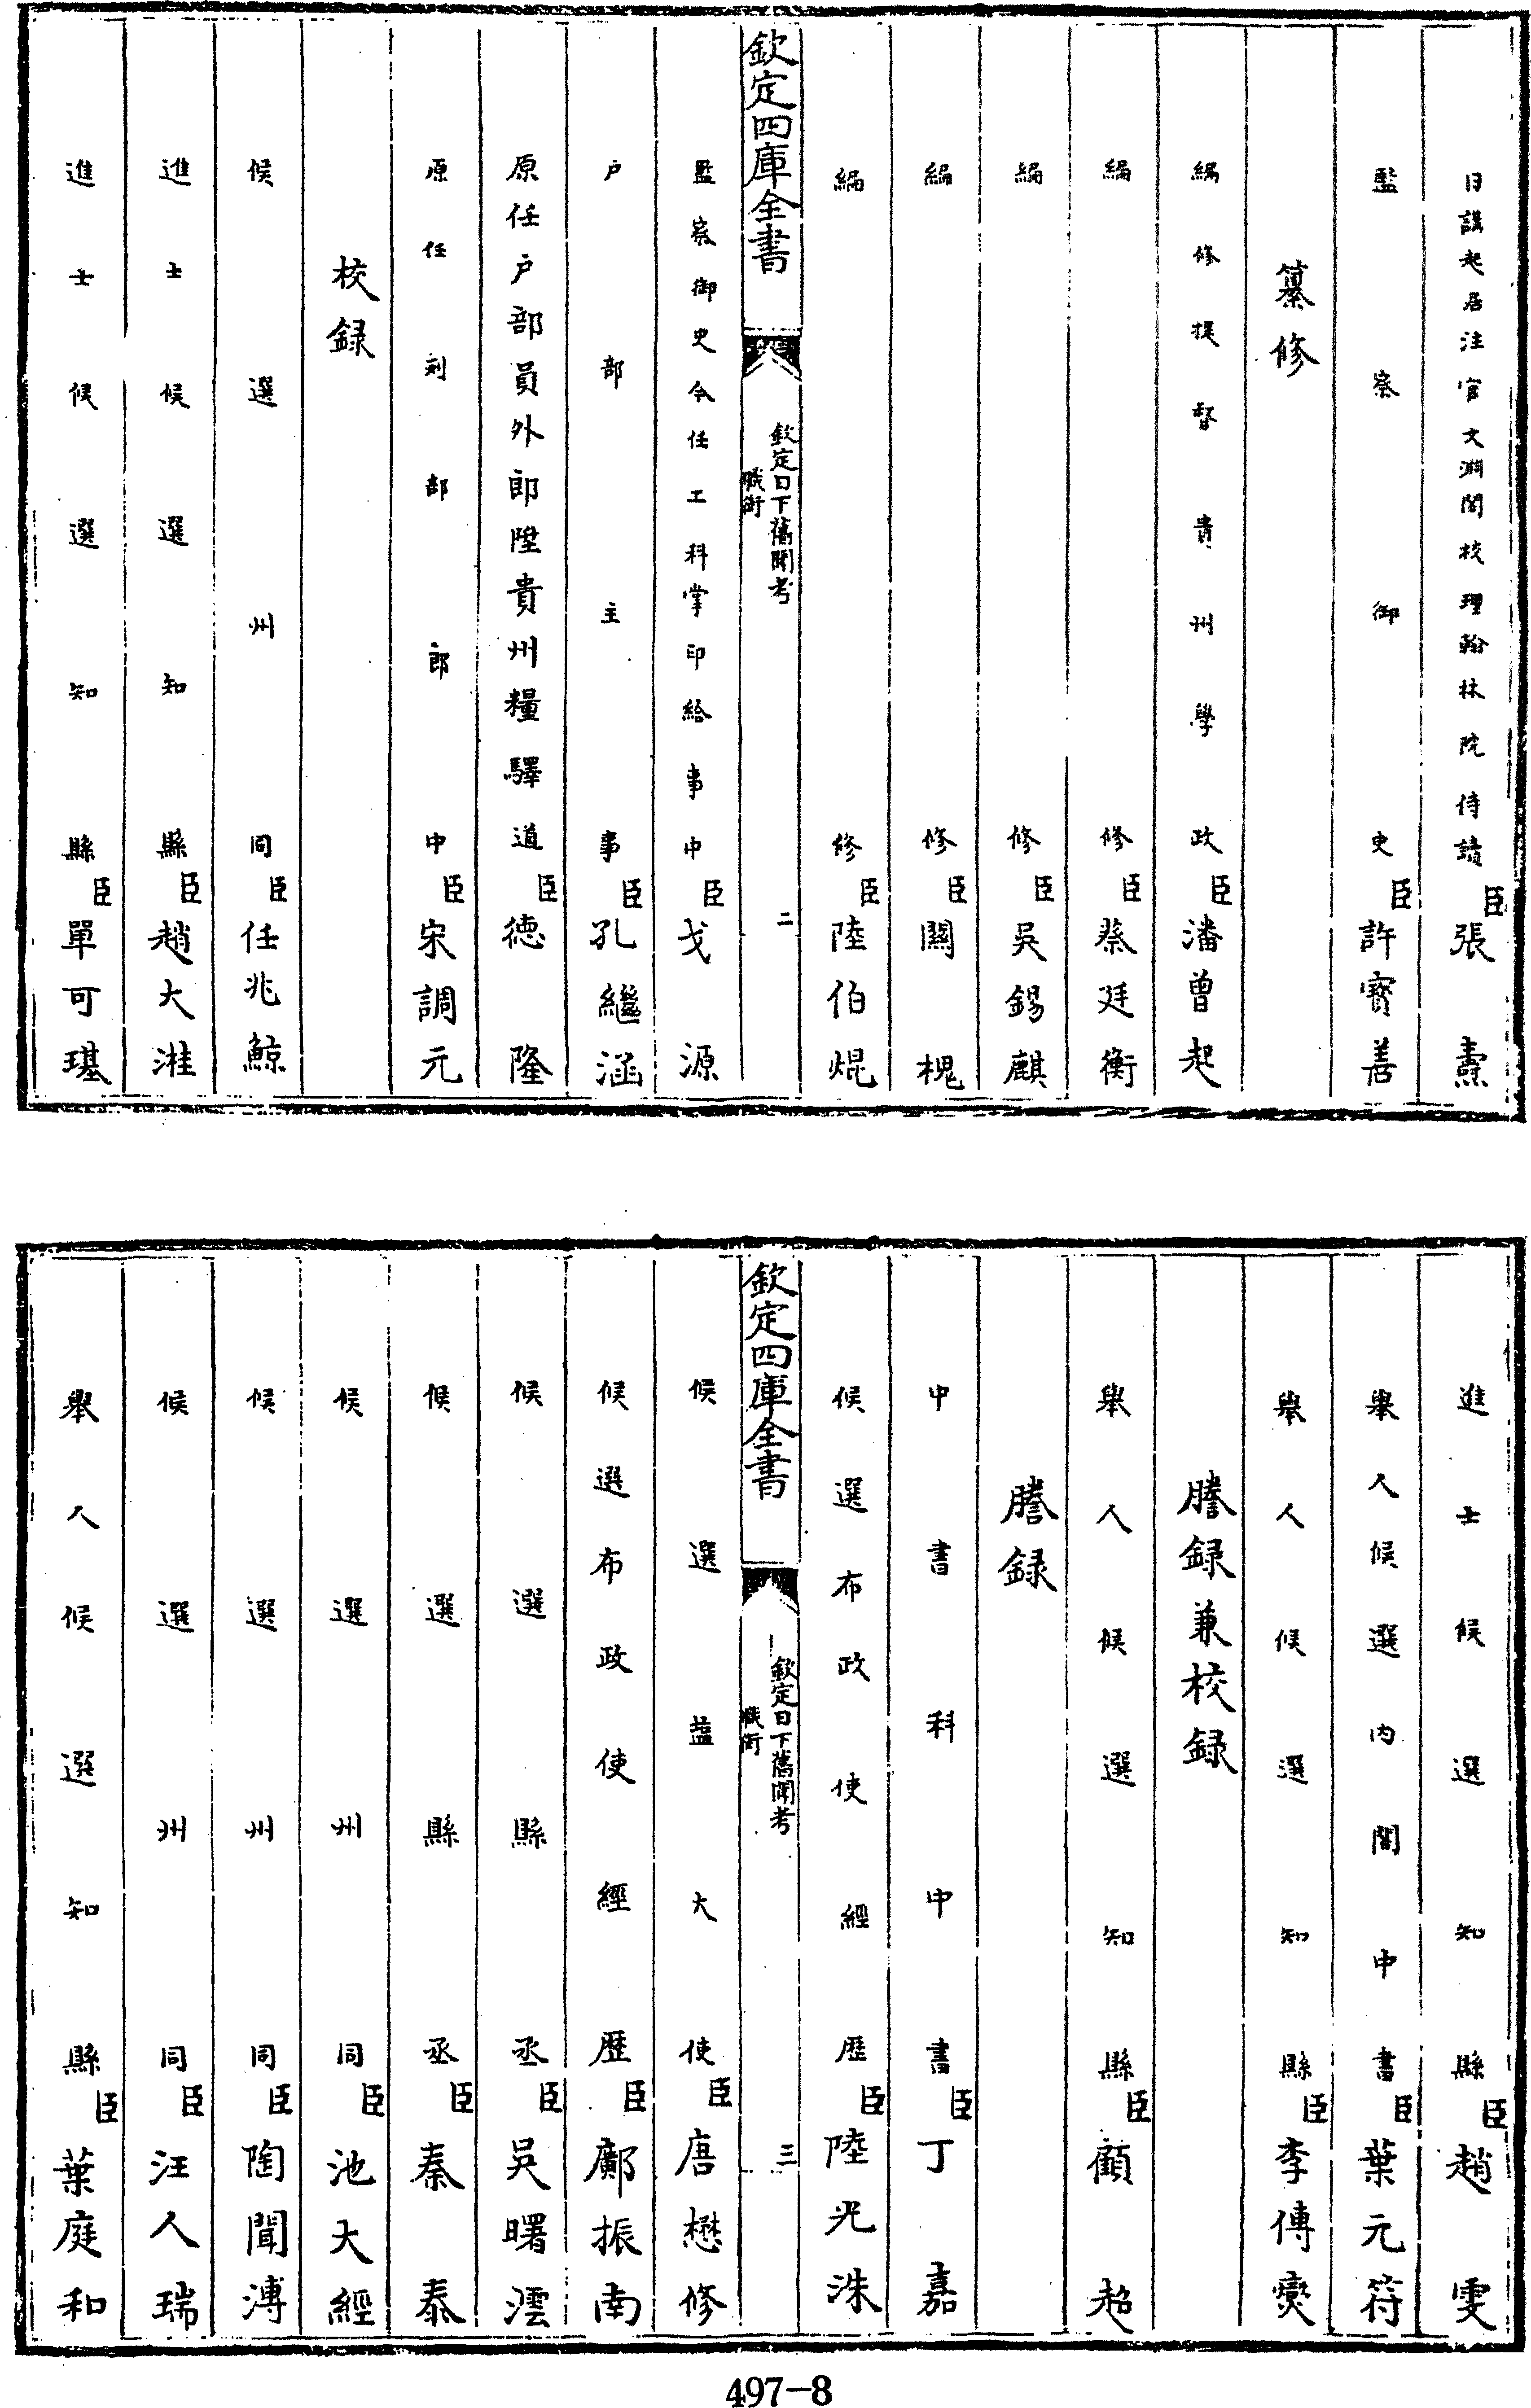 日講起居注官文淵閣校理翰林院侍讀臣張燾
監察御史臣許寶善
纂修
編修提督貴州學政臣潘曾起
編修臣蔡廷衡
編修臣吳錫麒
編修臣關槐
編修臣陸伯焜
欽定四庫全書
欽定日下舊聞考
職銜
二
監察御史今任工科掌印給事中臣戈源
户部主事臣孔繼涵
原任户部員外郎陞貴州糧驛道臣德隆
原任刑部郎中臣宋調元
校録
候選州同臣任兆鯨
進士候選知縣臣趙大淮
進士候選知縣臣單可琪
進士候選知縣臣趙雯
舉人候選內閣中書臣葉元符
舉人候選知縣臣李傳燮
謄録兼校録
舉人候選知縣臣顧超
謄録
中書科中書臣丁嘉
候選布政使經歷臣陸光洙
欽定四庫全書
欽定日下舊聞考
職銜
三
候選鹽大使臣唐懋修
候選布政使經歷臣鄺振南
候選縣丞臣吳曙澐
候選縣丞臣秦泰
候選州同臣池大經
候選州同臣陶聞溥
候選州同臣汪人瑞
舉人候選知縣臣葉庭和
497-8